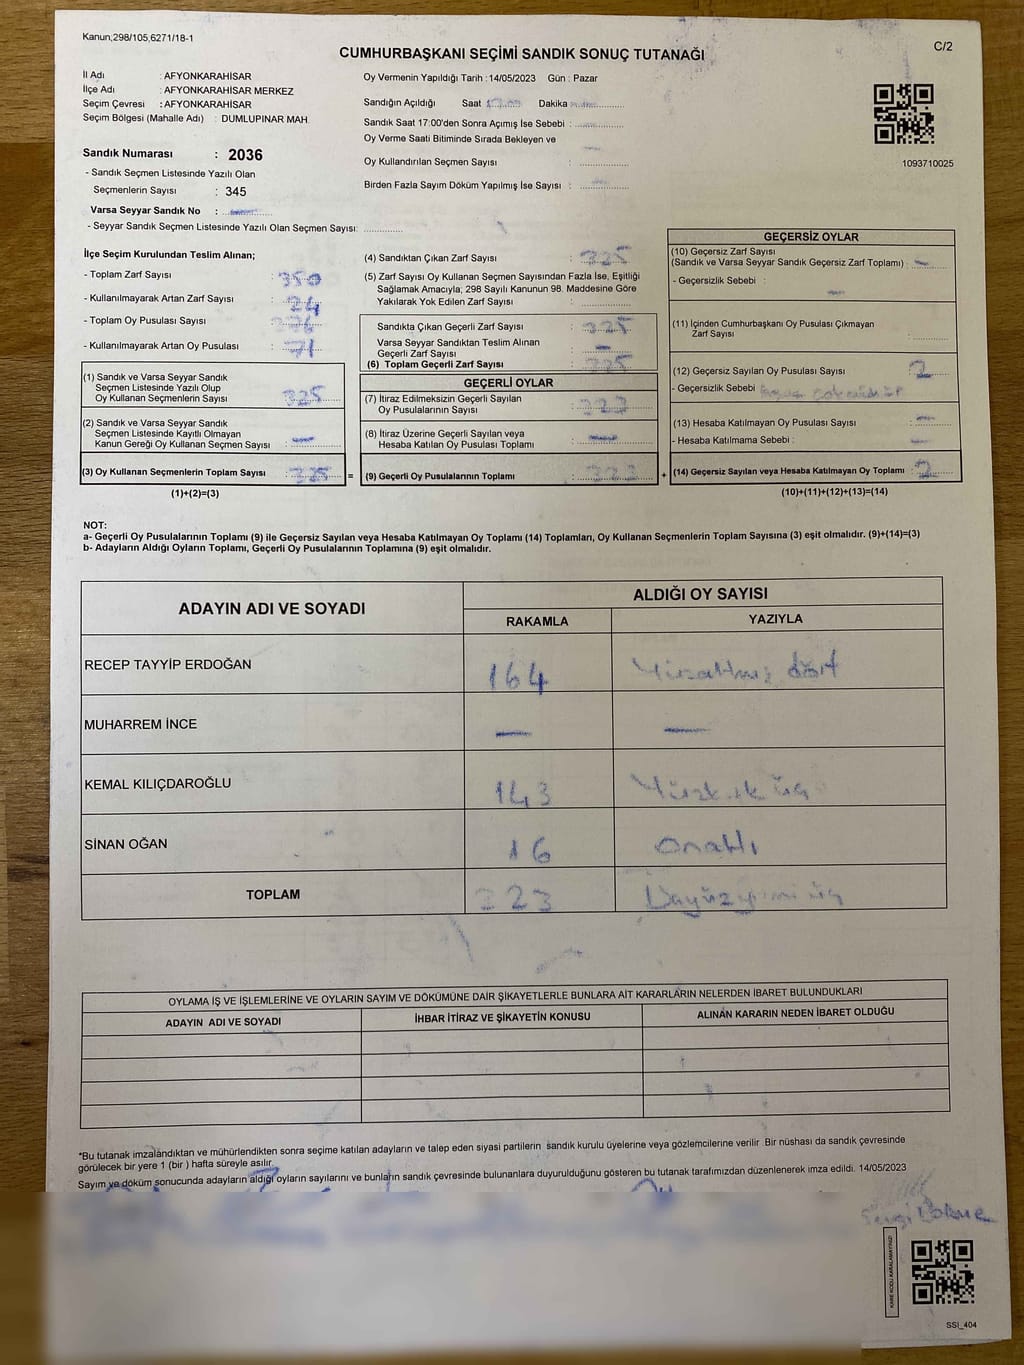 Kanun;298/105,6271/18-1
C/2
CUMHURBAŞKANI SEÇİMİ SANDIK SONUÇ TUTANAĞI
İl Adı : AFYONKARAHİSAR
İlçe Adı : AFYONKARAHİSAR MERKEZ
Seçim Çevresi : AFYONKARAHİSAR
Seçim Bölgesi (Mahalle Adı) : DUMLUPINAR MAH.
Oy Vermenin Yapıldığı Tarih : 14/05/2023 Gün : Pazar
Sandığın Açıldığı Saat Dakika
Sandık Saat 17:00'den Sonra Açımış İse Sebebi :
Oy Verme Saati Bitiminde Sırada Bekleyen ve
Oy Kullandırılan Seçmen Sayısı :
Birden Fazla Sayım Döküm Yapılmış İse Sayısı :
1093710025
Sandık Numarası : 2036
- Sandık Seçmen Listesinde Yazılı Olan
Seçmenlerin Sayısı : 345
Varsa Seyyar Sandık No : —
- Seyyar Sandık Seçmen Listesinde Yazılı Olan Seçmen Sayısı:
İlçe Seçim Kurulundan Teslim Alınan;
- Toplam Zarf Sayısı : 350
- Kullanılmayarak Artan Zarf Sayısı : 24
- Toplam Oy Pusulası Sayısı :
- Kullanılmayarak Artan Oy Pusulası : 71
(1) Sandık ve Varsa Seyyar Sandık
Seçmen Listesinde Yazılı Olup
Oy Kullanan Seçmenlerin Sayısı : 325
(2) Sandık ve Varsa Seyyar Sandık
Seçmen Listesinde Kayıtlı Olmayan
Kanun Gereği Oy Kullanan Seçmen Sayısı : —
(3) Oy Kullanan Seçmenlerin Toplam Sayısı : 325
(1)+(2)=(3)
(4) Sandıktan Çıkan Zarf Sayısı : 325
(5) Zarf Sayısı Oy Kullanan Seçmen Sayısından Fazla İse, Eşitliği
Sağlamak Amacıyla; 298 Sayılı Kanunun 98. Maddesine Göre
Yakılarak Yok Edilen Zarf Sayısı :
Sandıkta Çıkan Geçerli Zarf Sayısı : 325
Varsa Seyyar Sandıktan Teslim Alınan
Geçerli Zarf Sayısı : —
(6) Toplam Geçerli Zarf Sayısı : 325
GEÇERLİ OYLAR
(7) İtiraz Edilmeksizin Geçerli Sayılan
Oy Pusulalarının Sayısı : 323
(8) İtiraz Üzerine Geçerli Sayılan veya
Hesaba Katılan Oy Pusulası Toplamı : —
= (9) Geçerli Oy Pusulalarının Toplamı : 323
GEÇERSİZ OYLAR
(10) Geçersiz Zarf Sayısı
(Sandık ve Varsa Seyyar Sandık Geçersiz Zarf Toplamı) : —
- Geçersizlik Sebebi : —
(11) İçinden Cumhurbaşkanı Oy Pusulası Çıkmayan
Zarf Sayısı :
(12) Geçersiz Sayılan Oy Pusulası Sayısı : 2
- Geçersizlik Sebebi
(13) Hesaba Katılmayan Oy Pusulası Sayısı : —
- Hesaba Katılmama Sebebi : —
+ (14) Geçersiz Sayılan veya Hesaba Katılmayan Oy Toplamı : 2
(10)+(11)+(12)+(13)=(14)
NOT:
a- Geçerli Oy Pusulalarının Toplamı (9) ile Geçersiz Sayılan veya Hesaba Katılmayan Oy Toplamı (14) Toplamları, Oy Kullanan Seçmenlerin Toplam Sayısına (3) eşit olmalıdır. (9)+(14)=(3)
b- Adayların Aldığı Oyların Toplamı, Geçerli Oy Pusulalarının Toplamına (9) eşit olmalıdır.
ADAYIN ADI VE SOYADI
ALDIĞI OY SAYISI
RAKAMLA YAZIYLA
RECEP TAYYİP ERDOĞAN 164 Yüzaltmış dört
MUHARREM İNCE — —
KEMAL KILIÇDAROĞLU 143 Yüzkırk üç
SİNAN OĞAN 16 Onaltı
TOPLAM 323
OYLAMA İŞ VE İŞLEMLERİNE VE OYLARIN SAYIM VE DÖKÜMÜNE DAİR ŞİKAYETLERLE BUNLARA AİT KARARLARIN NELERDEN İBARET BULUNDUKLARI
ADAYIN ADI VE SOYADI İHBAR İTİRAZ VE ŞİKAYETİN KONUSU ALINAN KARARIN NEDEN İBARET OLDUĞU
*Bu tutanak imzalandıktan ve mühürlendikten sonra seçime katılan adayların ve talep eden siyasi partilerin sandık kurulu üyelerine veya gözlemcilerine verilir Bir nüshası da sandık çevresinde
görülecek bir yere 1 (bir ) hafta süreyle asılır.
Sayım ve döküm sonucunda adayların aldığı oyların sayılarını ve bunların sandık çevresinde bulunanlara duyurulduğunu gösteren bu tutanak tarafımızdan düzenlenerek imza edildi. 14/05/2023
KARE KODU KARALAMAYINIZ!
SSI_404